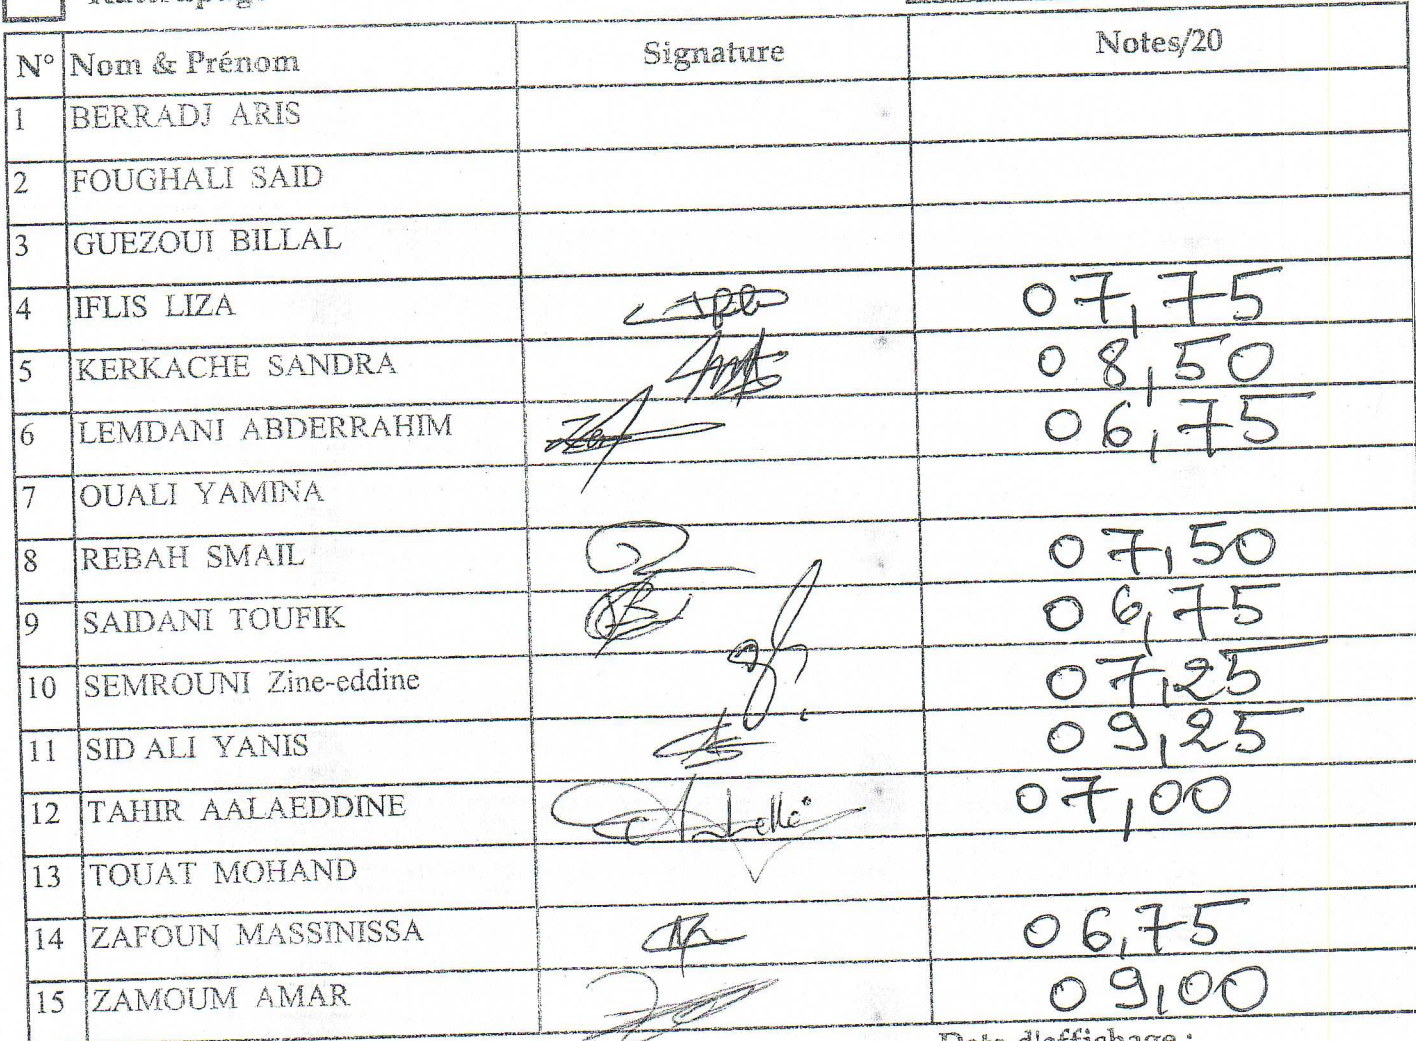 N° Nom & Prénom Signature Notes/20
1 BERRADJ ARIS
2 FOUGHALI SAID
3 GUEZOUI BILLAL
4 IFLIS LIZA 07,75
5 KERKACHE SANDRA 08,50
6 LEMDANI ABDERRAHIM 06,75
7 OUALI YAMINA
8 REBAH SMAIL 07,50
9 SAIDANI TOUFIK 06,75
10 SEMROUNI Zine-eddine 07,25
11 SID ALI YANIS 09,25
12 TAHIR AALAEDDINE 07,00
13 TOUAT MOHAND
14 ZAFOUN MASSINISSA 06,75
15 ZAMOUM AMAR 09,00
Date d'affichage :